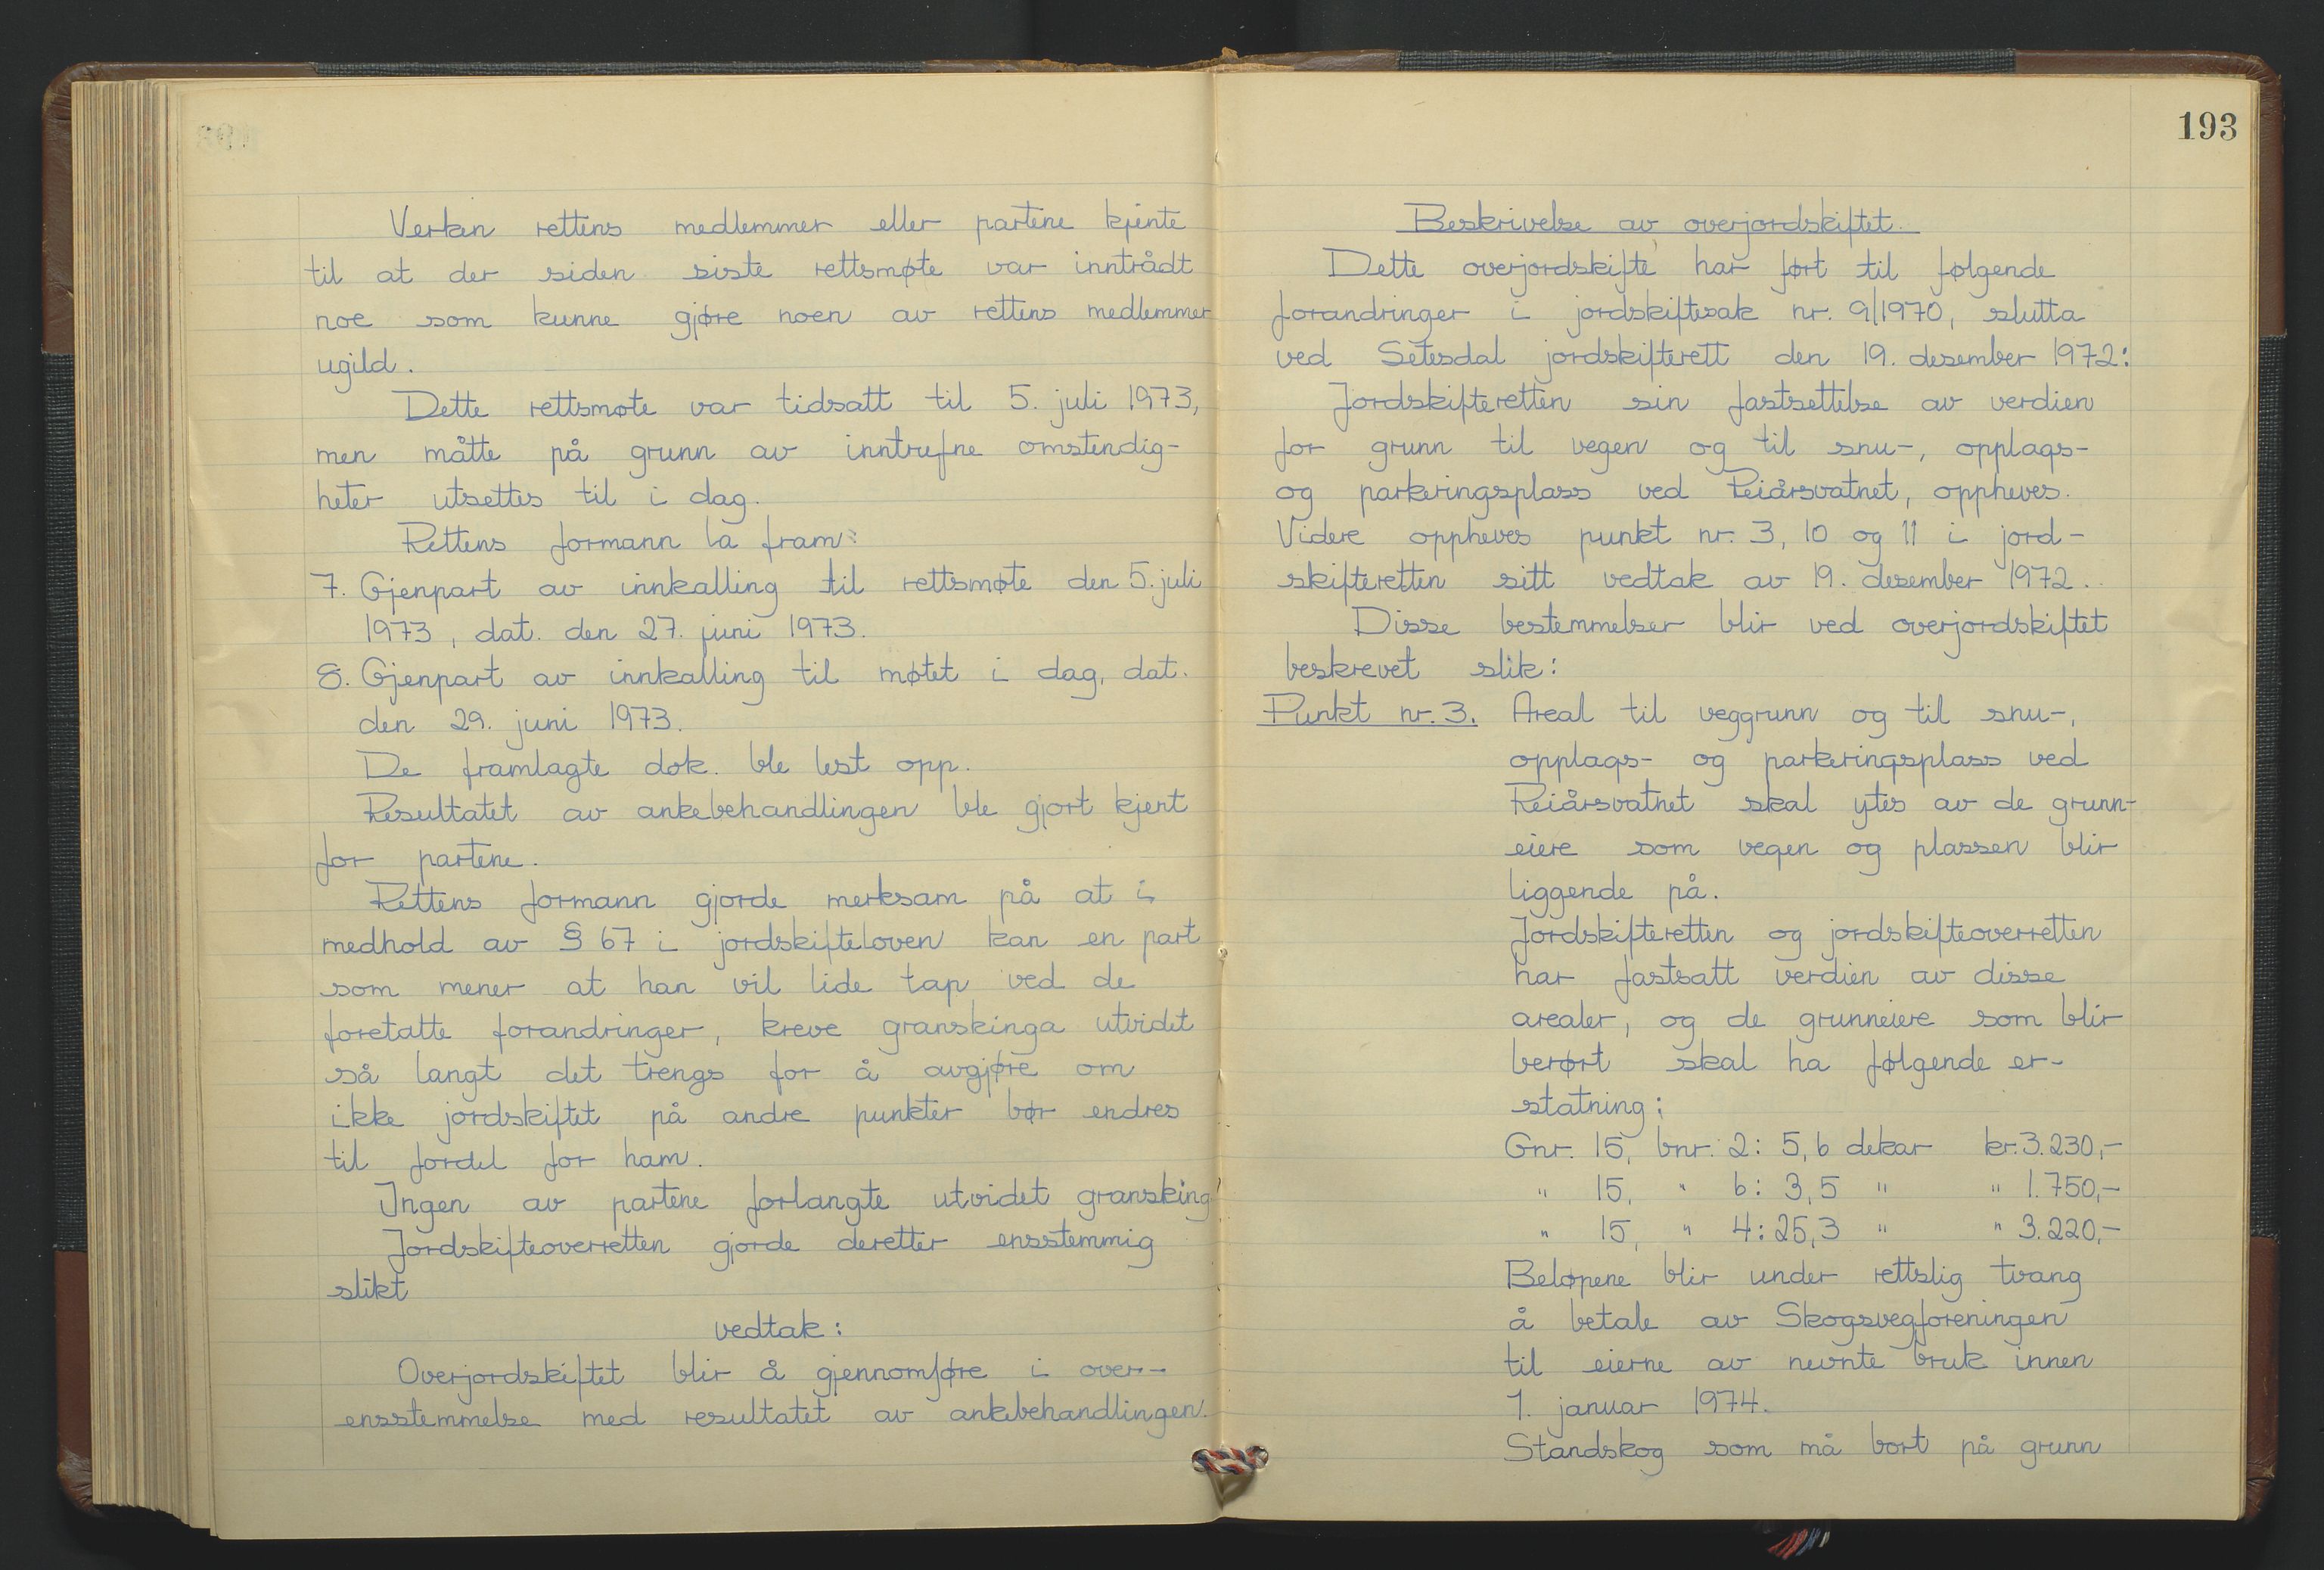 Verken rettens medlemmer eller partene kjente
til at der siden siste rettsmøte var inntrådt
noe som kunne gjøre noen av rettens medlemmer
ugild.
Dette rettsmøte var tidsatt til 5. juli 1973,
men måtte på grunn av inntrufne omstendig-
heter utsettes til i dag.
Rettens formann la fram:
7. Gjenpart av innkalling til rettsmøte den 5. juli
1973, dat. den 27. juni 1973.
8. Gjenpart av innkalling til møtet i dag, dat.
den 29. juni 1973.
De framlagte dok. ble lest opp.
Resultatet av ankebehandlingen ble gjort kjent
for partene.
Rettens formann gjorde merksam på at i
medhold av § 67 i jordskifteloven kan en part
som mener at han vil lide tap ved de
foretatte forandringer, kreve granskinga utvidet
så langt det trengs for å avgjøre om
ikke jordskiftet på andre punkter bør endres
til fordel for ham.
Ingen av partene forlangte utvidet gransking.
Jordskifteoverretten gjorde deretter ensstemmig
slikt
vedtak:
Overjordskiftet blir å gjennomføre i over-
ensstemmelse med resultatet av ankebehandlingen.
193
Beskrivelse av overjordskiftet.
Dette overjordskifte har ført til følgende
forandringer i jordskiftesak nr. 9/1970, slutta
ved Setesdal jordskifterett den 19. desember 1972:
Jordskifteretten sin fastsettelse av verdien
for grunn til vegen og til snu-, opplags-
og parkeringsplass ved Reiårsvatnet, oppheves.
Videre oppheves punkt nr. 3, 10 og 11 i jord-
skifteretten sitt vedtak av 19. desember 1972.
Disse bestemmelser blir ved overjordskiftet
beskrevet slik:
Punkt nr. 3. Areal til veggrunn og til snu-,
opplags- og parkeringsplass ved
Reiårsvatnet skal ytes av de grunn-
eiere som vegen og plassen blir
liggende på.
Jordskifteretten og jordskifteoverretten
har fastsatt verdien av disse
arealer, og de grunneiere som blir
berørt skal ha følgende er-
statning:
Gnr. 15, bnr. 2: 5,6 dekar kr. 3.230,-
" 15, " 6: 3,5 " " 1.750,-
" 15, " 4: 25,3 " " 3.220,-
Beløpene blir under rettslig tvang
å betale av Skogsvegforeningen
til eierne av nevnte bruk innen
1. januar 1974.
Standskog som må bort på grunn